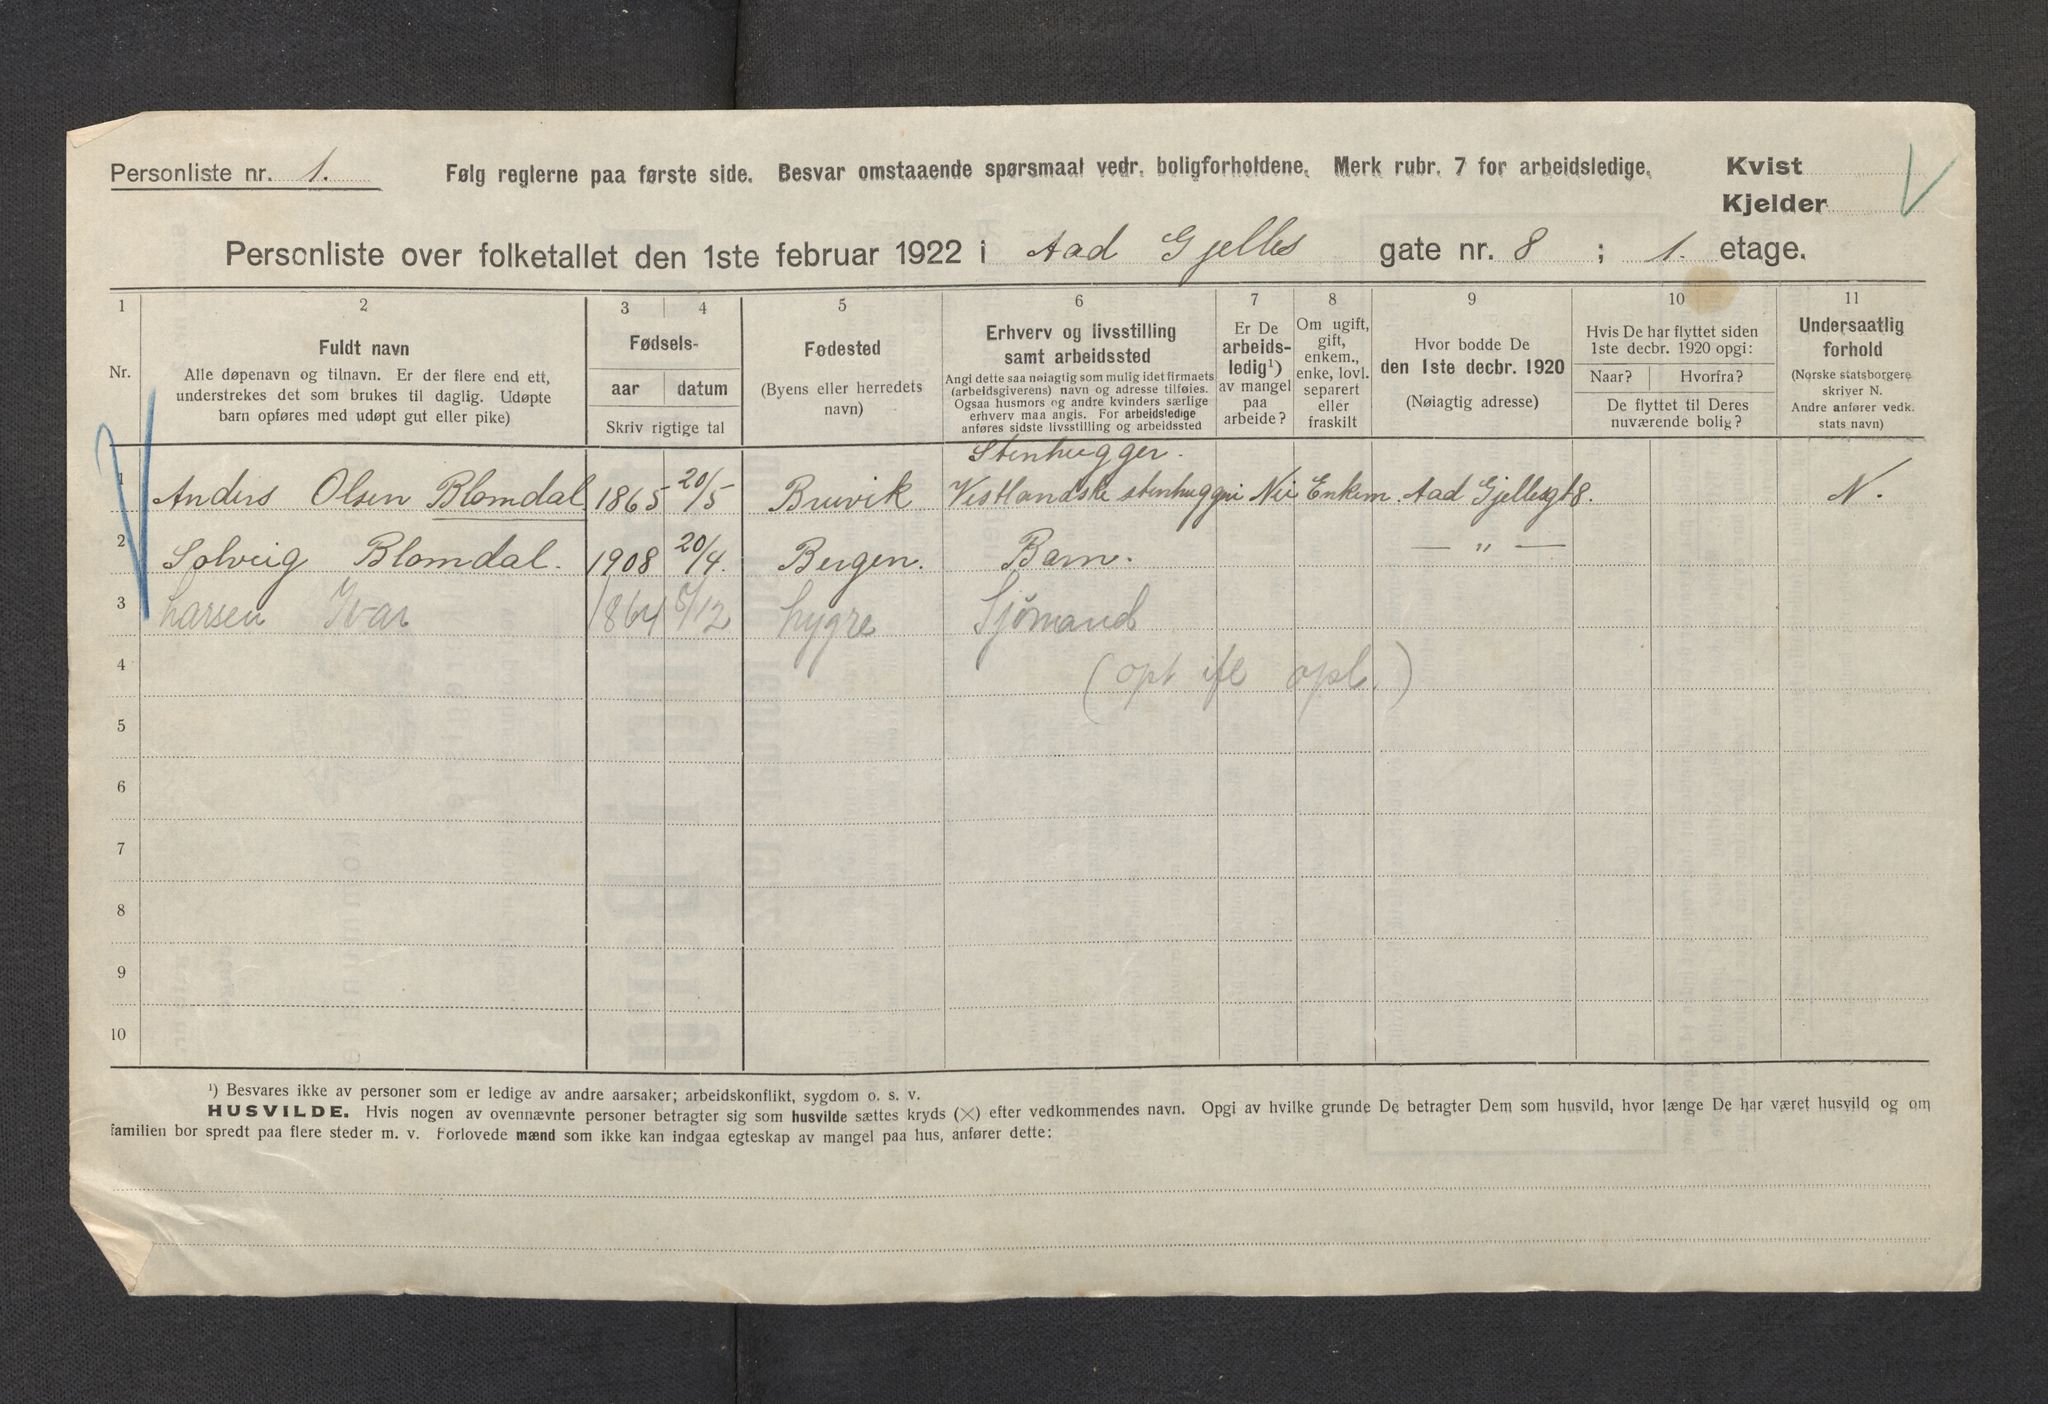 Personliste nr. 1. Følg reglerne paa første side. Besvar omstaaende spørsmaal vedr. boligforholdene. Merk rubr. 7 for arbeidsledige. Kvist
Kjelder
Personliste over folketallet den 1ste februar 1922 i Aad Gjelles gate nr. 8 ; 1. etage.
1 2 3 4 5 6 7 8 9 10 11
Nr.
Fuldt navn
Alle døpenavn og tilnavn. Er der flere end ett,
understrekes det som brukes til daglig. Udøpte
barn opføres med udøpt gut eller pike)
Fødsels-
aar datum
Skriv rigtige tal
Fødested
(Byens eller herredets
navn)
Erhverv og livsstilling
samt arbeidssted
Angi dette saa nøiagtig som mulig idet firmaets
(arbeidsgiverens) navn og adresse tilføies.
Ogsaa husmors og andre kvinders særlige
erhverv maa angis. For arbeidsledige
anføres sidste livsstilling og arbeidssted
Er De
arbeids-
ledig¹)
av mangel
paa
arbeide?
Om ugift,
gift,
enkem.,
enke, lovl.
separert
eller
fraskilt
Hvor bodde De
den 1ste decbr. 1920
(Nøiagtig adresse)
Hvis De har flyttet siden
1ste decbr. 1920 opgi:
Naar? Hvorfra?
De flyttet til Deres
nuværende bolig?
Undersaatlig
forhold
(Norske statsborgere
skriver N.
Andre anfører vedk.
stats navn)
Stenhugger.
1 Anders Olsen Blomdal 1865 20/5 Bruvik Vestlandske stenhuggeri Nei Enkem. Aad Gjellesgt 8. N.
2 Solveig Blomdal. 1908 20/4. Bergen. Barn. — " —
3 Larsen Ivar 1864 5/12 Lygre Sjömand
4 (opt ifl opl.)
5
6
7
8
9
10
¹) Besvares ikke av personer som er ledige av andre aarsaker; arbeidskonflikt, sygdom o. s. v.
HUSVILDE. Hvis nogen av ovennævnte personer betragter sig som husvilde sættes kryds (×) efter vedkommendes navn. Opgi av hvilke grunde De betragter Dem som husvild, hvor længe De har været husvild og om
familien bor spredt paa flere steder m. v. Forlovede mænd som ikke kan indgaa egteskap av mangel paa hus, anfører dette: